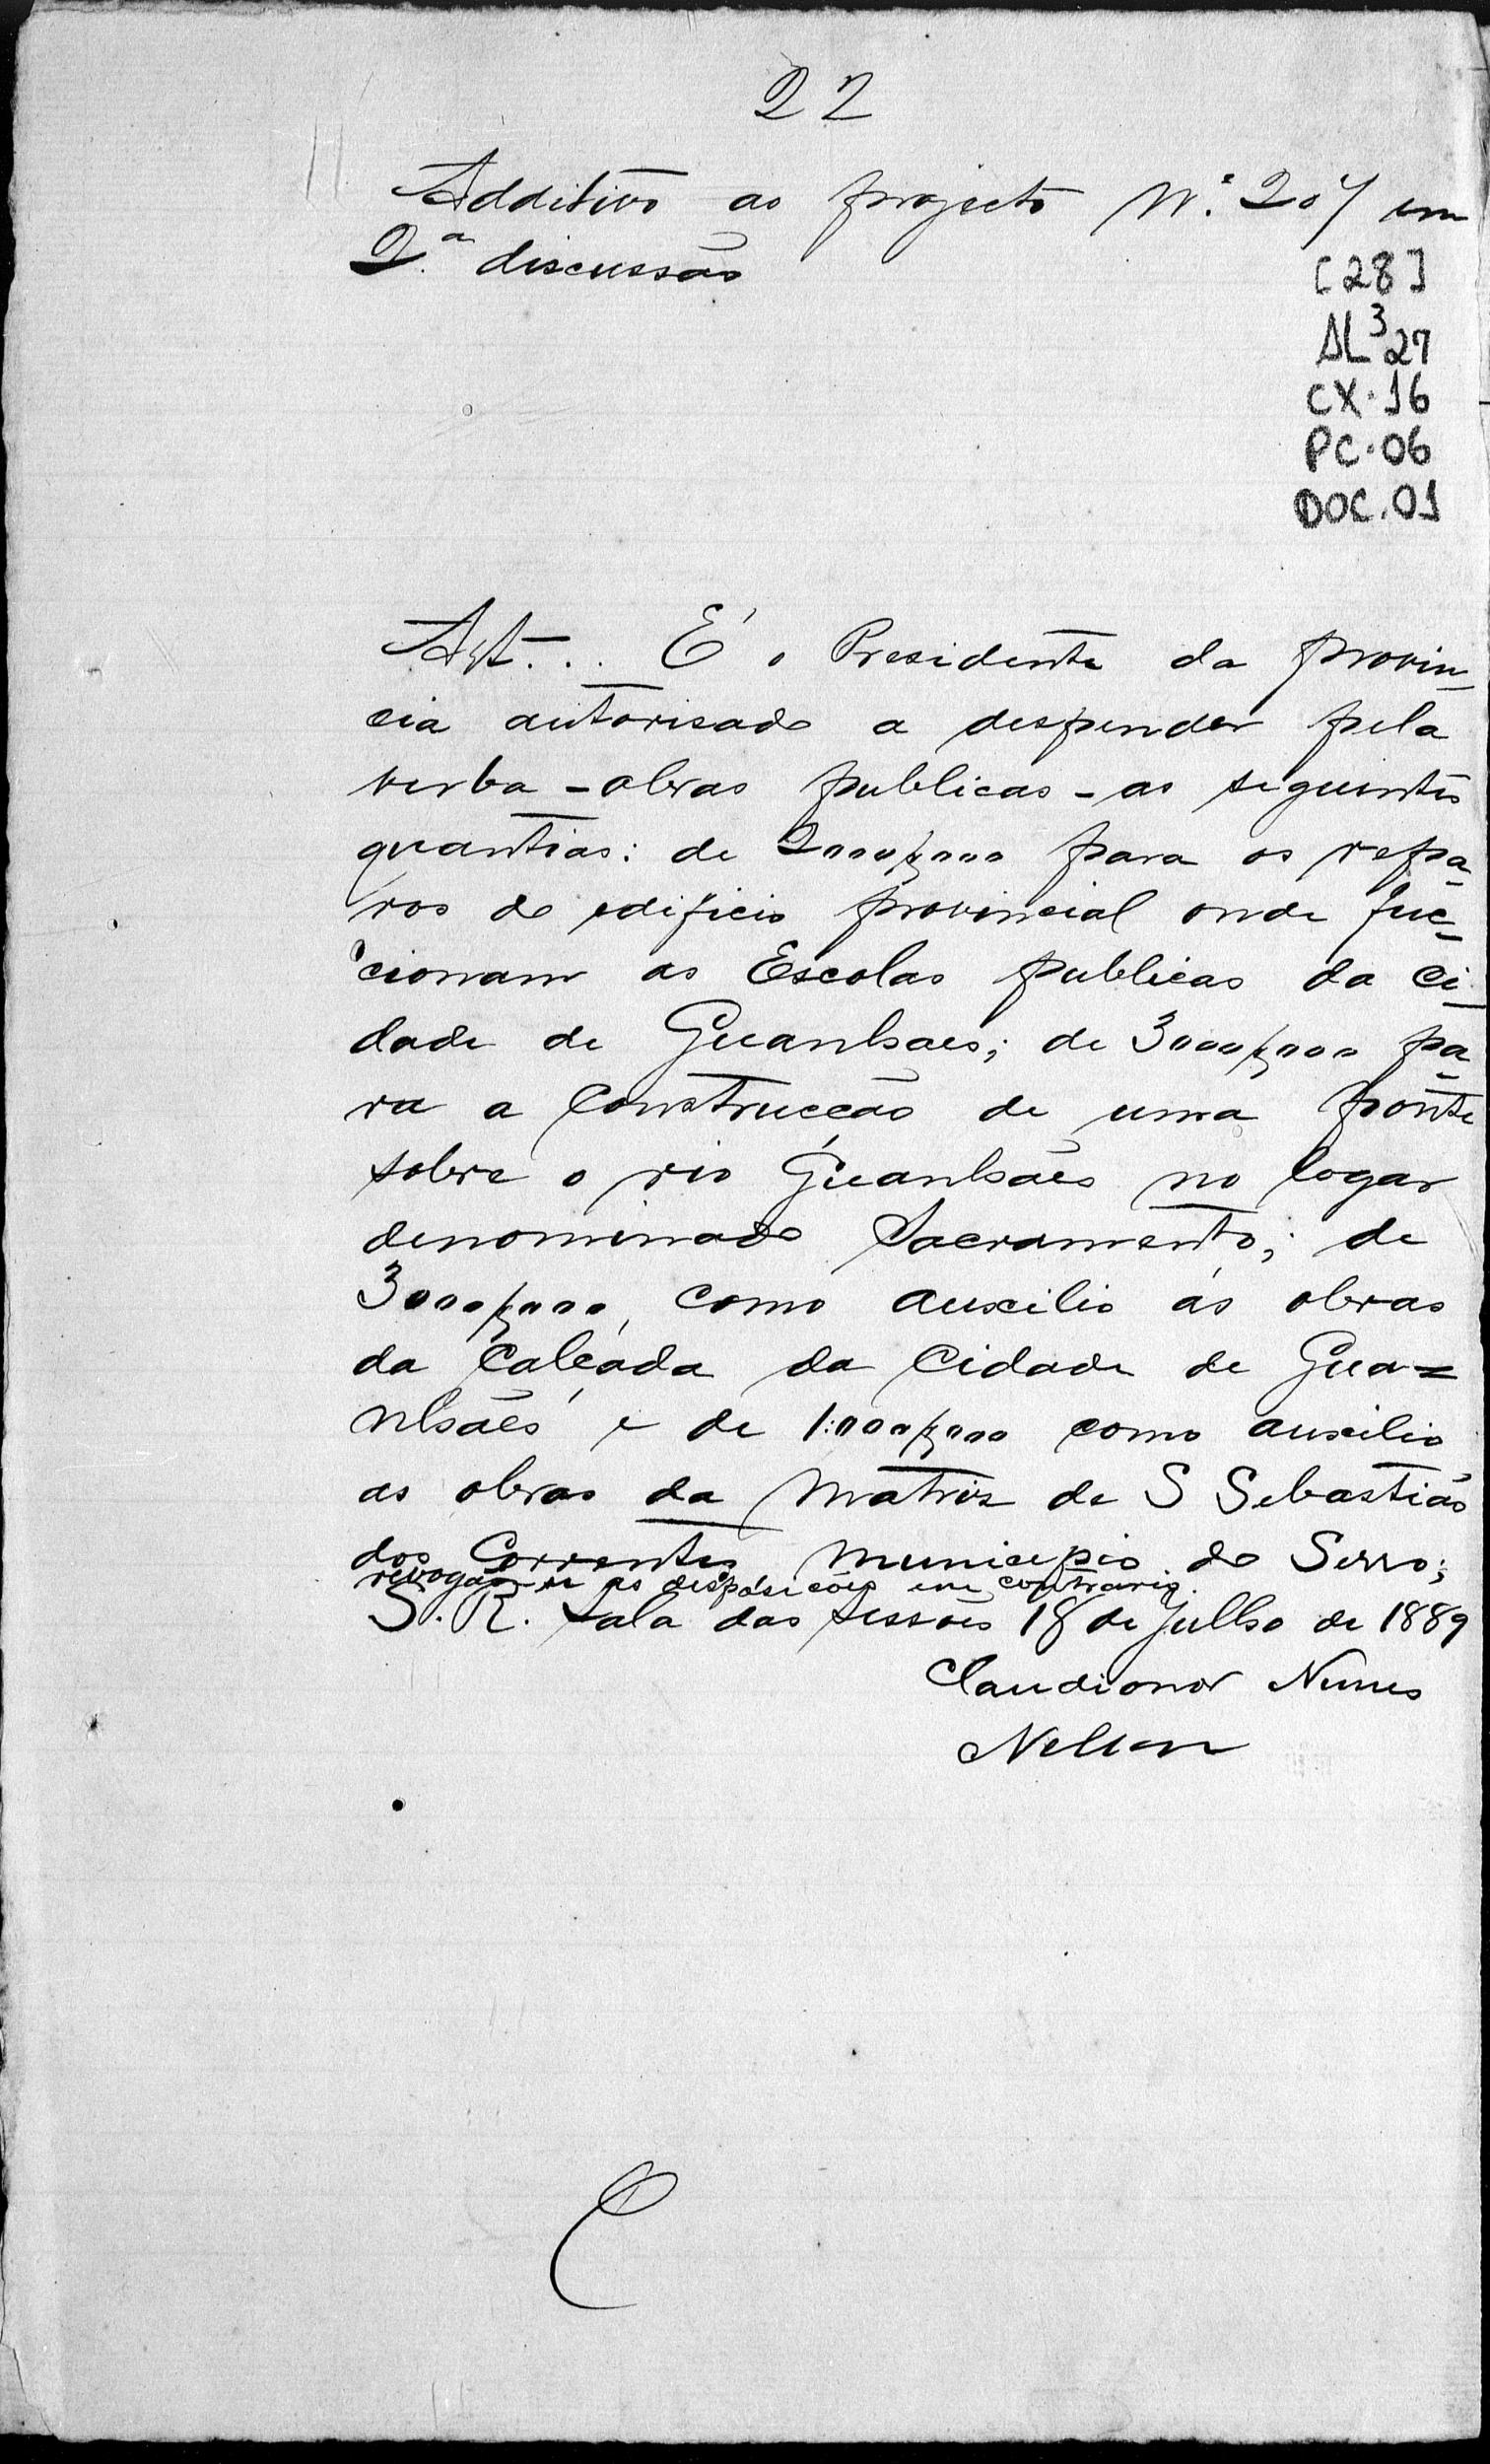 22
Additivo ao projecto N.º 207 em
2.ª discussão
[28]
AL³27
CX.16
PC.06
DOC.01
Art... É o Presidente da provin-
cia autorisado a despender pela
verba - obras publicas - as seguintes
quantias: de 2000$000 para os repa-
ros do edificio provincial onde fuc-
cionam as Escolas publicas da ci-
dade de Guanhaes; de 3000$000 pa-
ra a construcção de uma ponte
sobre o rio Guanhães no logar
denominado Sacramento; de
3000$000, como auxilio ás obras
da calçada da Cidade de Gua=
nhães e de 1:000$000 como auxilio
as obras da Matriz de S Sebastião
dos Correntes municipio do Serro;
revogão-se as disposições em contrario.
S. R. Sala das sessões 18 de Julho de 1889
Claudionor Nunes
Nelson